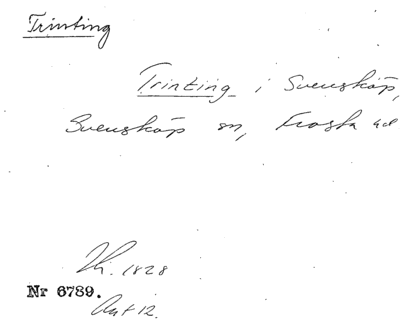 Trinting
Trinting i Svensköp,
Svensköp sn, Frosta hd
1828
Nr 6789.
12.